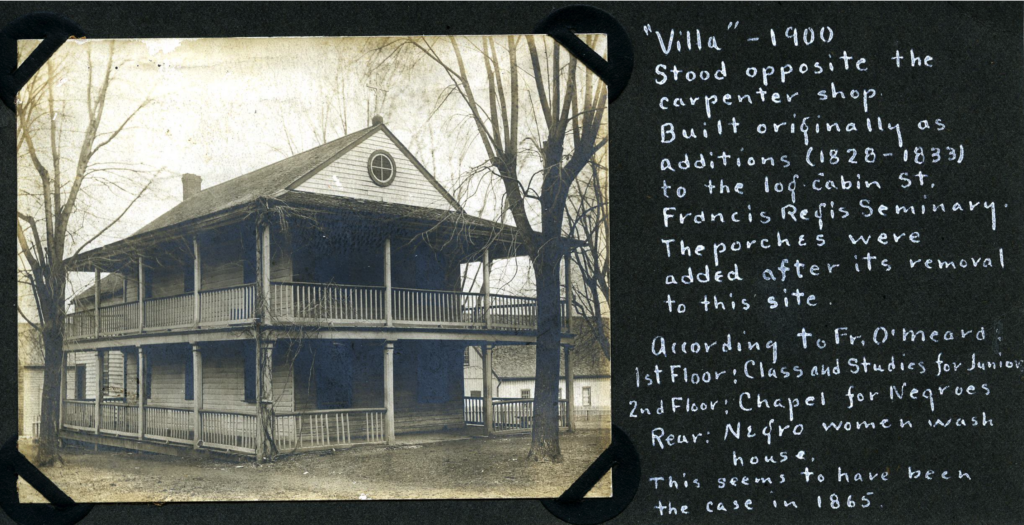 "Villa" - 1900
Stood opposite the
carpenter shop.
Built originally as
additions (1828-1833)
to the log cabin St.
Francis Regis Seminary.
The porches were
added after its removal
to this site.
According to Fr. O'meara:
1st Floor: Class and Studies for Juniors
2nd Floor: Chapel for Negroes
Rear: Negro women wash
house.
This seems to have been
the case in 1865.